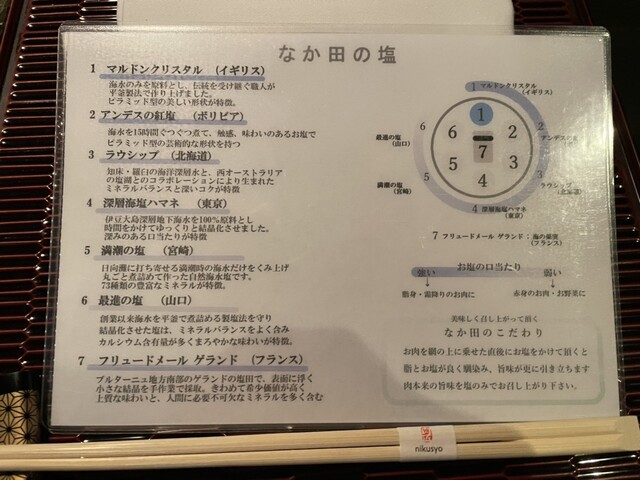 なか田の塩
1 マルドンクリスタル (イギリス)
海水のみを原料とし、伝統を受け継ぐ職人が
平釜製法で作り上げました。
ピラミッド型の美しい形状が特徴。
2 アンデスの紅塩 (ボリビア)
海水を15時間ぐつぐつ煮て、触感、味わいのあるお塩で
ピラミッド型の芸術的な形状を持つ
3 ラウシップ (北海道)
知床・羅臼の海洋深層水と、西オーストラリア
の塩湖とのコラボレーションにより生まれた
ミネラルバランスと深いコクが特徴
4 深層海塩ハマネ (東京)
伊豆大島深層地下海水を100%原料とし
時間をかけてゆっくりと結晶化させました。
深みのある口当たりが特徴
5 満潮の塩 (宮崎)
日向灘に打ち寄せる満潮時の海水だけをくみ上げ
丸ごと煮詰めて作った自然海水塩です。
73種類の豊富なミネラルが特徴。
6 最進の塩 (山口)
創業以来海水を平釜で煮詰める製塩法を守り
結晶化させた塩は、ミネラルバランスをよく含み
カルシウム含有量が多くまろやかな味わいが特徴。
7 フリュードメール ゲランド (フランス)
ブルターニュ地方南部のゲランドの塩田で、表面に浮く
小さな結晶を手作業で採取。きわめて希少価値が高く
上質な味わいと、人間に必要不可欠なミネラルを多く含む
1 マルドンクリスタル
(イギリス)
2 アンデスの
3 ラウシップ
(北海道)
4 深層海塩ハマネ
(東京)
5
満潮の塩
(宮崎)
6
最進の塩
(山口)
1
2
3
4
5
6
7
7 フリュードメール ゲランド : 海の果実
(フランス)
強い お塩の口当たり 弱い
脂身・霜降りのお肉に 赤身のお肉・お野菜に
美味しく召し上がって頂く
なか田のこだわり
お肉を網の上に乗せた直後にお塩をかけて頂くと
脂とお塩が良く馴染み、旨味が更に引き立ちます
肉本来の旨味を塩のみでお召し上がり下さい。
nikusyo